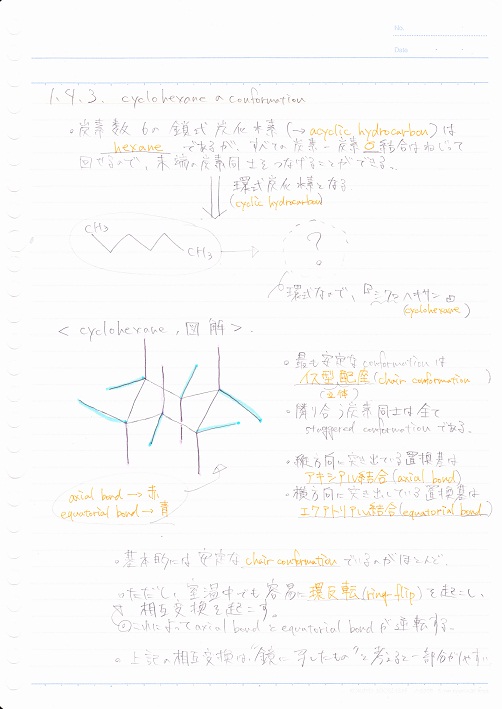 No.
Date
1.4.3. cyclohexane の conformation
・炭素数6の鎖式炭化水素(→ acyclic hydrocarbon)は
hexane であるが、すべての炭素-炭素σ結合はねじって
回せるので、末端の炭素同士をつなげることができる。
環式炭化水素となる
(cyclic hydrocarbon)
CH3
CH3
?
環式なので、シクロヘキサン
(cyclohexane)
<cyclohexane, 図解>.
・最も安定な conformation は
イス型配座(chair conformation)
(立体)
・隣り合う炭素同士は全て
staggered conformation である。
・縦方向に突き出ている置換基は
アキシアル結合(axial bond)
・横方向に突き出している置換基は
エクアトリアル結合(equatorial bond)
axial bond → 赤
equatorial bond → 青
・基本的には安定な chair conformation でいるのがほとんど.
・ただし、室温中でも容易に環反転(ring flip)を起こし、
相互交換を起こす。
これによって axial bond と equatorial bond が逆転する。
・上記の相互交換は、"鏡に写したもの"と考えると一部分かりやすい